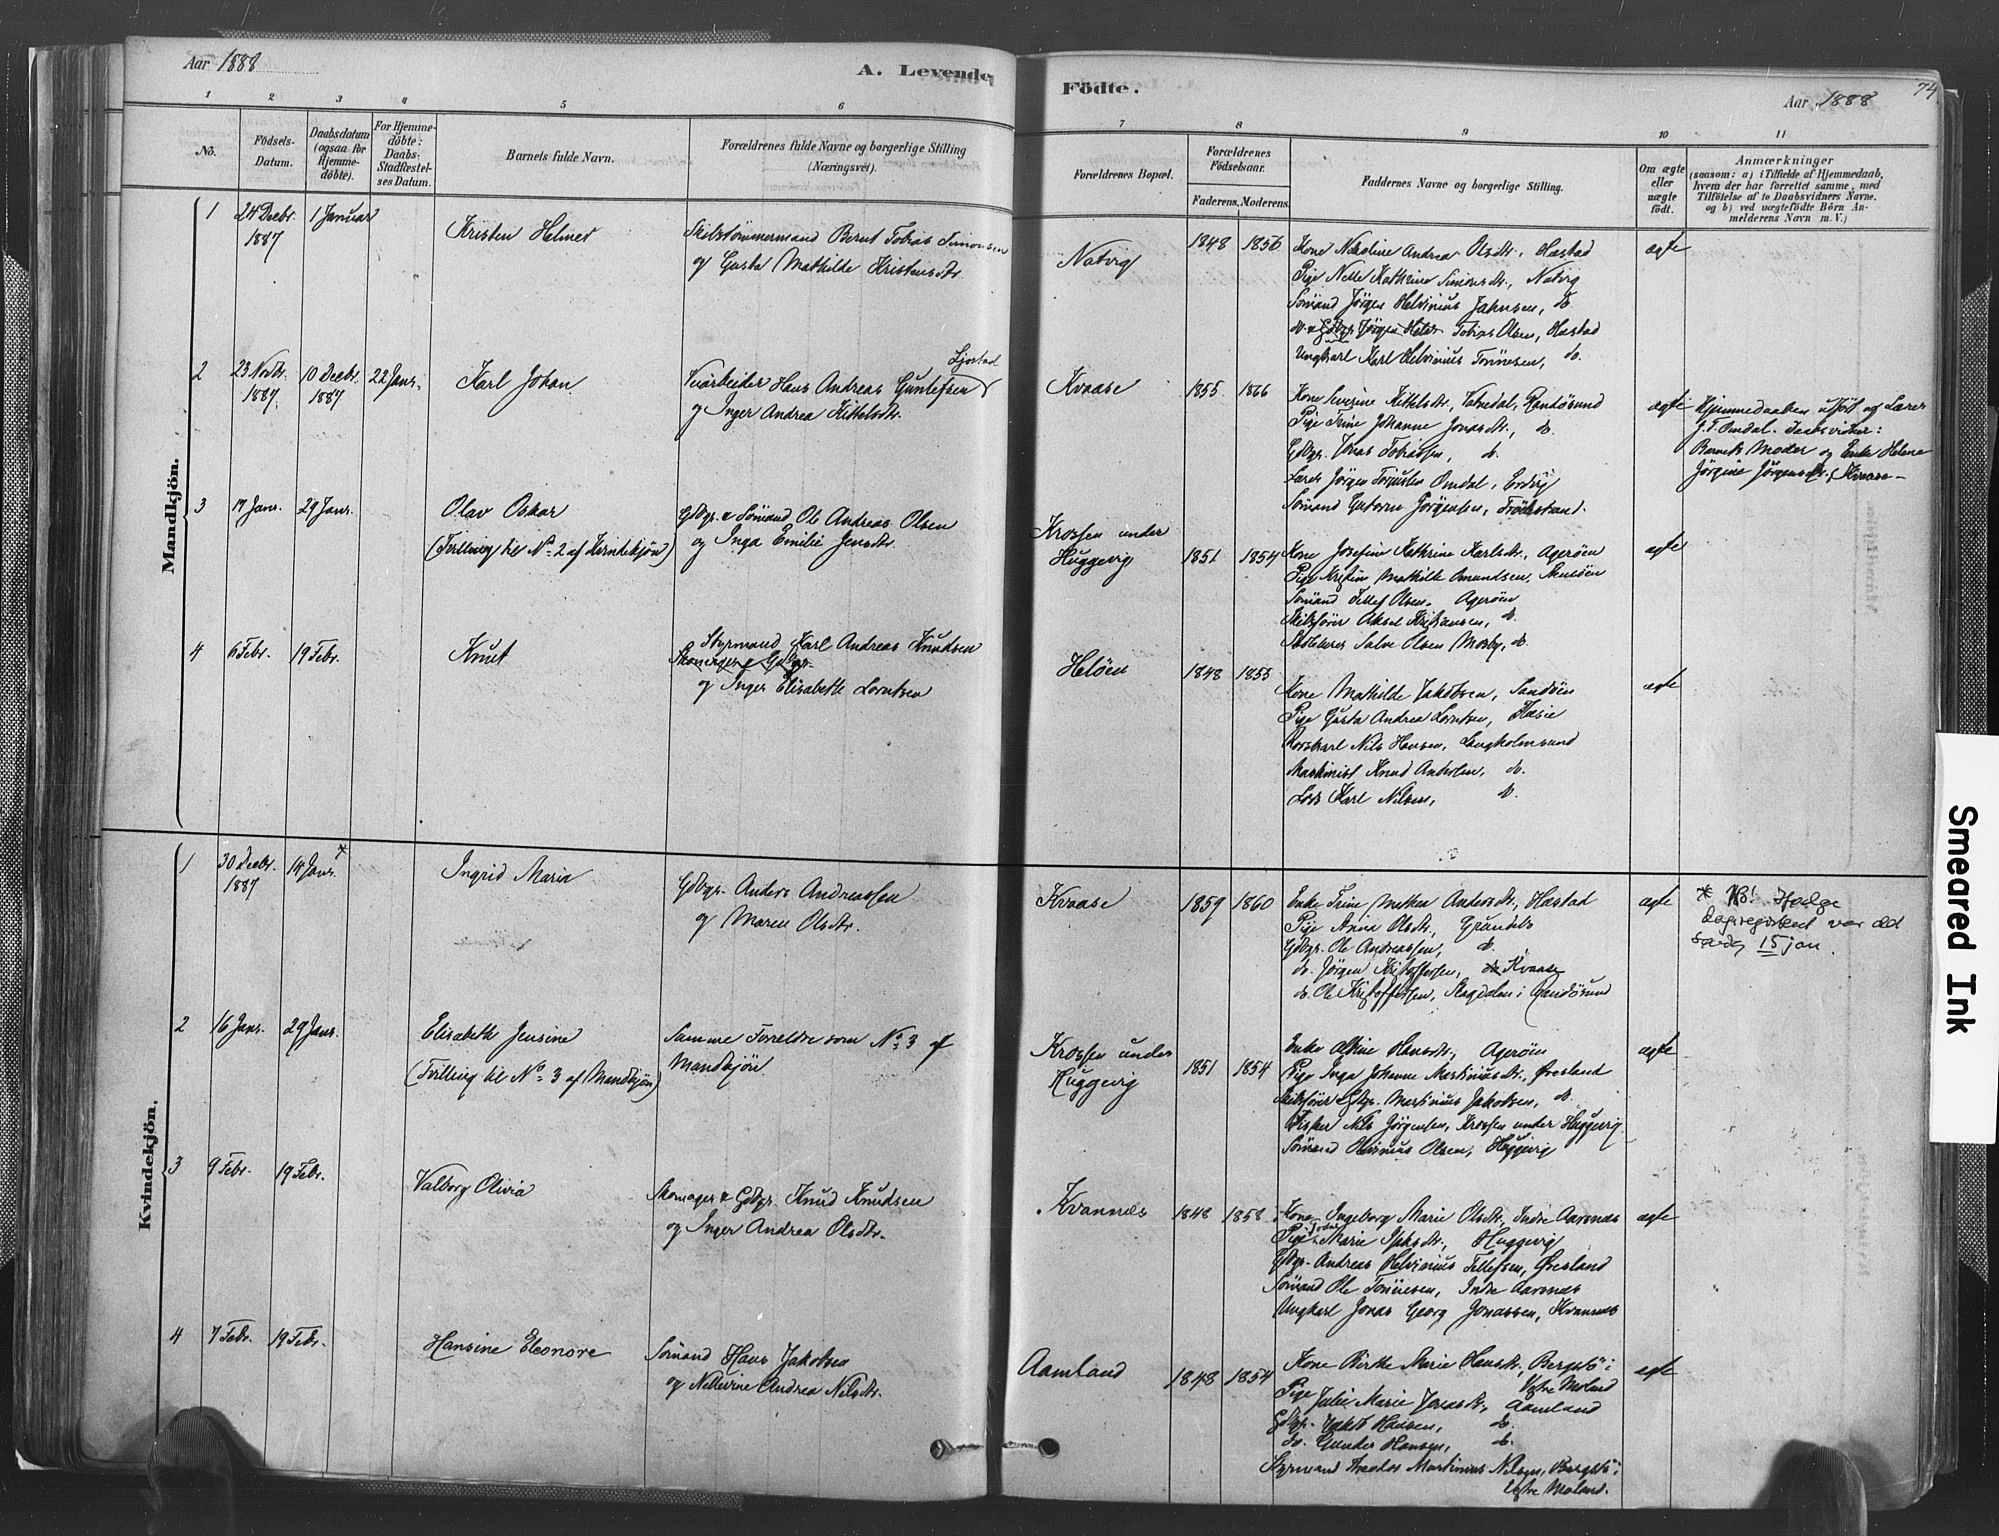 Aar 1888
A. Levende
Födte.
Aar 1888
74
1 2 3 4 5 6 7 8 9 10 11
No.
Födsels-Datum.
Daabsdatum (ogsaa for Hjemme-döbte).
For Hjemme-döbte: Daabs-Stadfæstelses Datum.
Barnets fulde Navn.
Forældrenes fulde Navne og borgerlige Stilling (Næringsvei).
Forældrenes Bopæl.
Forældrenes Födselsaar.
Faderens. Moderens.
Faddernes Navne og borgerlige Stilling.
Om ægte eller uægte födt.
Anmærkninger
(saasom: a) i Tilfælde af Hjemmedaab, hvem der har forrettet samme, med Tilföielse af to Daabsvidners Navne, og b) ved uægtefödte Börn Anmelderens Navn m. V.)
Mandkjön.
1 24 Decbr. 1887 1 Januar Kristen Helmer
Skibstömmermand Bernt Tobias Simonsen
og Gusta Mathilde Kristensdtr.
Natvig 1848 1856
Kone Nikoline Andrea Olsdtr., Hæstad
Pige Nelle Kathrine Simonsdtr., Natvig
Sömand Jörgen Helvinius Jahnsen, do.
Tobias Olsen, Hæstad
Ungkarl Karl Helvinius Tönnesen, do.
ægte
2 23 Novbr. 1887. 10 Decbr. 1887 22 Janr. Karl Johan
Ljostad
Veiarbeider Hans Andreas Guntefsen
og Inger Andrea Kittelsdtr.
Kvaase 1855 1866
Kone Severine Kittelsdtr., Randösund
Pige Trine Johanne Jonasdtr., do.
Gdbgr. Jonas Tobiassen, do.
Lærer Jörgen Omdal,
Sömand Jörgensen,
ægte
Hjemmedaaben udfört og Lærer
J. T. Omdal. Daabsvidner:
Barnets Moder og Enke Helene
Jörgine Jörgensdtr., Kvaase
3 17 Janr. 29 Janr. Olav Oskar
(Tvilling til No. 2 af Kvindekjön)
Gdbgr. & Sömand Ole Andreas Olsen
og Inga Emilie Jensdtr.
Krossen under
Huggevig 1851 1854
Kone Josefine Kathrine Karlsdtr., Ageröen
Pige Kristine Mathilde Amundsen,
Sömand Tellef Olsen, Ageröen
Skibsförer Aksel Kristiansen, do.
Salve Olsen Mosby, do.
ægte
4 6 Febr. 19 Febr. Knut
Styrmand Karl Andreas Knudsen
Skomager & Gdbgr.
og Inger Elisabeth Lorntsen
Helöen 1848 1855
Kone Mathilde Jakobsen, Sandöen
Pige Gusta Andrea Lorntsen, Kæsie
Nils Hansen, Langholmsund
Maskinist Knud Andersen, do.
Lods Karl Nilsen, do.
ægte
Kvindekjön.
1 30 Decbr. 1887 14 Janr. * Ingrid Maria
Gdbgr. Anders Andreassen
og Maren Olsdtr.
Kvaase 1859 1860
Enke Trine Mathea Andersdtr., Hæstad
Pige Anna Olsdtr., Grundels
Gdbgr. Ole Andreassen, do.
do. Jörgen Kristoffersen, do Kvaase
do. Ole Kristoffersen, i Randösund
ægte
* NB! Ifølge
dagregisteret var det
søndag 15 jan.
2 16 Janr. 29 Janr. Elisabeth Jensine
(Tvilling til No. 3 af Mandkjön)
Samme Foreldre som No. 3 af
Mandkjön.
Krossen under
Huggevig 1851 1854
Enke Hansdtr., Ageröen
Pige Inga Johanne Martiniusdtr., Øresland
Skibsförer & Gdbgr. Martinius Jakobsen, do.
Fisker Nils Jörgensen, Krossen under Huggevig
Sömand Olsen, Huggevig
ægte
3 9 Febr. 19 Febr. Valborg Olivia
Skomager & Gdbgr. Knud Knudsen
og Inger Andrea Olsdtr.
Kvannes 1848 1858
Kone Ingeborg Marie Olsdtr., Indre Aaronæs
Pige Marie Huggevig
Gdbgr. Andreas Helvinius Tellefsen, Øresland
Sömand Ole Tönnesen, Indre Aaronæs
Ungkarl Jonas Georg Jonassen, Kvannes
ægte
4 7 Febr. 19 Febr. Hansine Eleonore
Sömand Hans Jakobsen
og Nellevine Andrea Nilsdtr.
Aamland 1848 1854
Kone Birthe Marie Hansdtr., Bergstö i
Vestre Moland
Pige Julie Marie Jensdtr., Aamland
Gdbgr. Jakob Hansen, do.
do. Gunder Hansen, do.
Styrmand Theodor Martinius Nilsen, Bergstö i
Vestre Moland.
ægte
Smeared Ink